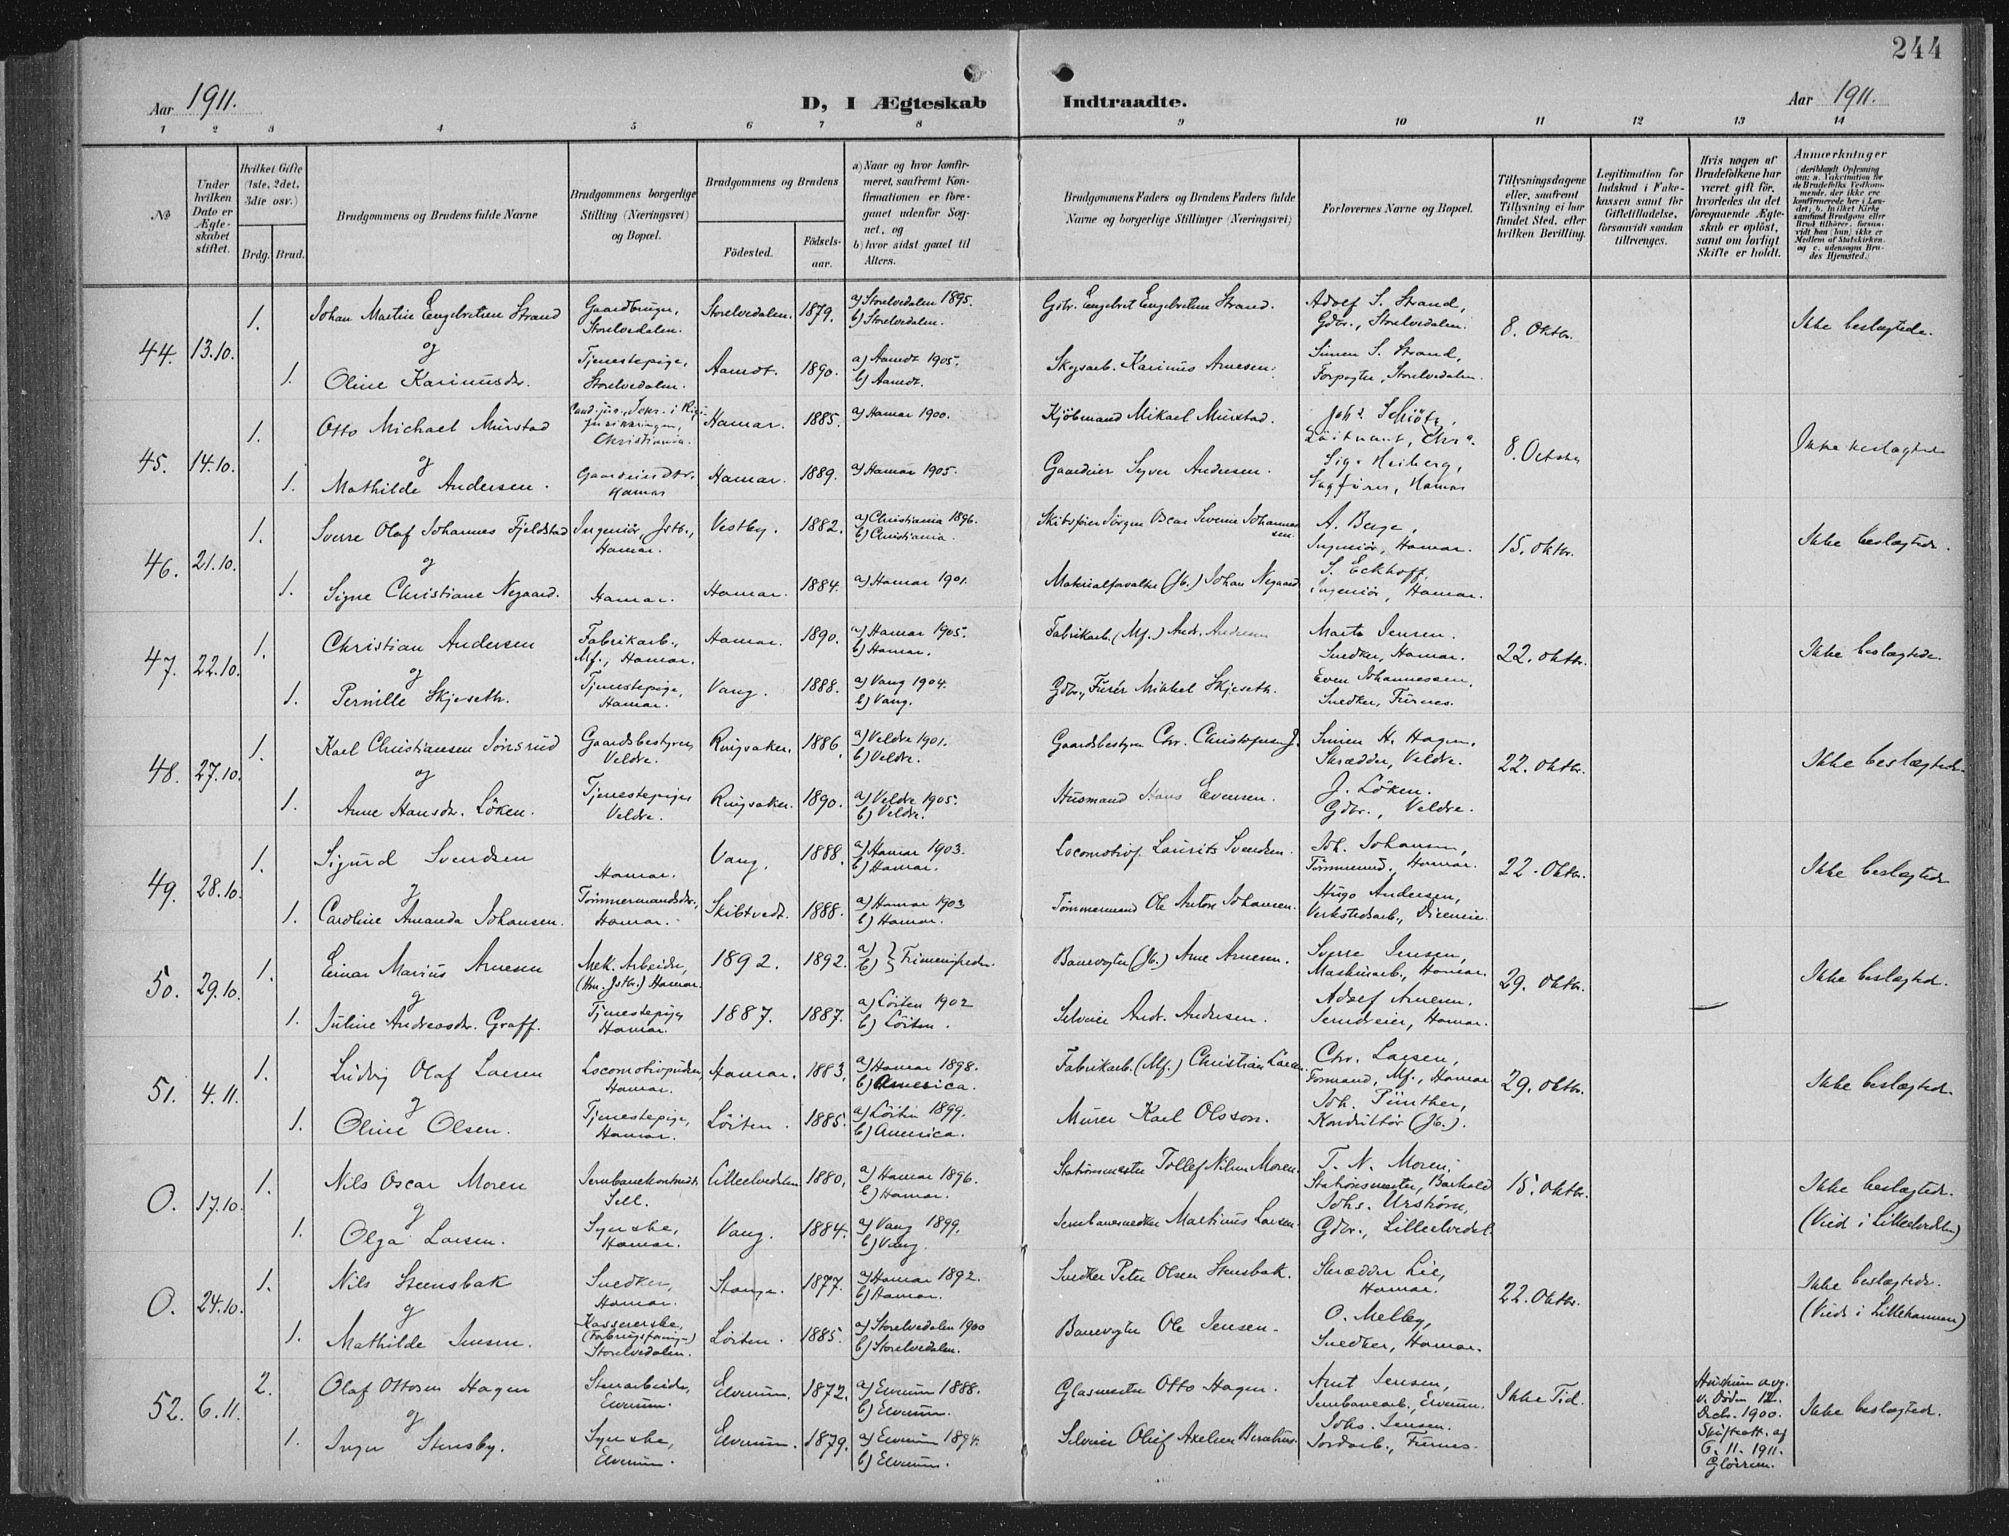 244
Aar 1911. D, I Ægteskab Indtraadte. Aar 1911.
1 2 3 4 5 6 7 8 9 10 11 12 13 14
№
Under hvilken Dato er Ægteskabet stiftet.
Hvilket Gifte (1ste, 2det, 3die osv.)
Brdg. Brud.
Brudgommens og Brudens fulde Navne
Brudgommens borgerlige Stilling (Næringsvei) og Bopæl.
Brudgommens og Brudens
Födested.
Födselsaar.
a) Naar og hvor konfirmeret, saafremt Konfirmationen er foregaaet udenfor Sognet, og
b) hvor sidst gaaet til Alters.
Brudgommens Faders og Brudens Faders fulde Navne og borgerlige Stillinger (Næringsvei)
Forlovernes Navne og Bopæl.
Tillysningsdagene eller, saafremt Tillysning ei har fundet Sted, efter hvilken Bevilling.
Legitimation for Indskud i Enkekassen samt for Giftetilladelse, forsaavidt saadan tiltrænges.
Hvis nogen af Brudefolkene har været gift för, hvorledes da det foregaaende Ægteskab er oplöst, samt om lovligt Skifte er holdt.
Anmærkninger
44. 13.10. 1. Johan Martin Engebretsen Strand Gaardbruger, Storelvedalen. Storelvedalen. 1879. a) Storelvedalen 1895. b) Storelvedalen. Gdbr. Engebret Engebretsen Strand. Adolf S. Strand, Gdbr., Storelvedalen. 8. Oktbr. Ikke beslægtede.
og
1. Oline Karinusdr. Tjenestepige, Storelvedalen. Aamot. 1890. a) Aamot 1905. b) Aamot. Skogsarb. Karinus Arnesen. Simen S. Strand, Forpagter, Storelvedalen.
45. 14.10. 1. Otto Michael Mürstad Christiania. Hamar. 1885. a) Hamar 1900. Kjöbmand Mikael Mürstad. Johs. Schiötz, Löitnant, Chra. 8. October Ikke beslægtede
og
1. Mathilde Andersen. Hamar Hamar. 1889. a) Hamar 1905. Gaardeier Syver Andersen. Sig. Heiberg, Sagförer, Hamar
46. 21.10. 1. Sverre Olaf Johannes Fjeldstad Ingeniör, Jstb., Hamar. Vestby. 1882. a) Christiania 1896. b) Christiania. Skibsförer Jörgen Oscar Severin Johannessen. A. Berge, Ingeniör, Hamar. 15. Oktbr. Ikke beslægtede.
og
1. Signe Christiane Negaard. Hamar. Hamar. 1884. a) Hamar 1901. Materialforvalter (Jb.) Johan Negaard S. Eckhoff, Ingeniör, Hamar.
47. 22.10. 1. Christian Andersen Fabrikarb., Mf., Hamar. Hamar. 1890. a) Hamar 1905. b) Hamar. Fabrikarb. (Mf.) Andr. Andersen Jensen. Snedker, Hamar. 22. Oktbr. Ikke beslægtede.
og
1. Pernille Skjeseth. Tjenestepige, Hamar. Vang. 1888. a) Vang 1904. b) Vang. Gdbr., Furer Mikkel Skjeseth. Even Johannessen, Snedker, Furnes.
48. 27.10. 1. Karl Christiansen Jönsrud Gaardsbestyrer, Veldre. Ringsaker. 1886. a) Veldre 1901. b) Veldre. Gaardsbestyrer Chr. Christophersen J. Simen H. Hagen, Skrædder, Veldre. 22. Oktbr. Ikke beslægtede.
og
1. Anne Hansdr. Löken. Tjenestepige Veldre. Ringsaker. 1890. a) Veldre 1905. b) Veldre. Husmand Hans Evensen. J. Löken. Gdbr., Veldre.
49. 28.10. 1. Sigurd Svendsen Hamar. Vang. 1888. a) Hamar 1903. b) Hamar. Locomotivf. Laurits Svendsen. Joh. Johansen, Tömmermd., Hamar. 22. Oktbr. Ikke beslægtede
og
1. Caroline Amanda Johansen. Tömmermandsdr., Hamar. Skibtvedt. 1888. a) Hamar 1903 b) Hamar. Tömmermand Ole Anton Johansen. Hugo Andersen, Verkstedsarb., Disenveien.
50. 29.10. 1. Einar Marius Arnesen Mek. Arbeider, (Hm. Jstb.) Hamar. 1892. 1892. a) b) } Frimenigheden. Banevogter (Jb.) Arne Arnesen. Sverre Jensen, Maskinarb., Hamar. 29. Oktbr. Ikke beslægtede.
og
1. Juline Andreasdr. Graff. Tjenestepige Hamar. 1887. 1887. a) Löiten 1902 b) Löiten. Selveier Andr. Andersen. Adolf Arnesen. Hamar.
51. 4.11. 1. Ludvig Olaf Larsen Locomotivpudser, Hamar. Hamar. 1883. a) Hamar 1898. b) America. Fabrikarb. (Mf.) Christian Larsen. Chr. Larsen, Formand, Mf., Hamar 29. Oktbr. Ikke beslægtede.
og
1. Oline Olsen. Tjenestepige, Hamar. Löiten. 1885. a) Löiten 1899. b) America. Murer Karl Olsson. Joh. Pünther, Konduktör (Jb.).
0. 17.10. 1. Nils Oscar Moren Jernbanekontorist, Sell. Lilleelvedalen 1880. a) Hamar 1896. b) Hamar. Stationsmester Tollef Nilsen Moren. T. N. Moren, Stationsmester, Barkald 15. Oktbr. Ikke beslægtede.
og (Viede i Lilleelvedalen)
1. Olga Larsen. Syerske, Hamar. Vang. 1884. a) Vang 1899. b) Vang. Jernbanesnedker Martinus Larsen. Johs. Urström, Gdbr., Lilleelvedal.
0. 24.10. 1. Nils Steensbak Snedker, Hamar. Stange. 1877. a) Hamar 1892. b) Hamar. Snedker Peter Olsen Stensbak. Skrædder Lie, Hamar. 22. Oktbr. Ikke beslægtede.
og (Viede i Lillehammer)
1. Mathilde Jensen. Kassererske, Storelvedalen. Löiten. 1885. a) Storelvedalen 1900 b) Storelvedalen. Banevogter Ole Jensen. O. Melby, Snedker, Hamar.
52. 6.11. 2. Olaf Ottosen Hagen Stenarbeider, Elverum. Elverum. 1872. a) Elverum 1888. b) Elverum. Glasmester Otto Hagen. Amt Jensen, Jernbanearb., Elverum. Ikke Tid. Dødn 12. Decbr. 1900. Skifteatt. af 6.11.1911. Ikke beslægtede.
og
1. Inger Stensby. Syerske, Elverum. Elverum. 1879. a) Elverum 1894. b) Elverum. Selveier Oluf Axelsen Johs. Jensen. Jordarb., Furnes.